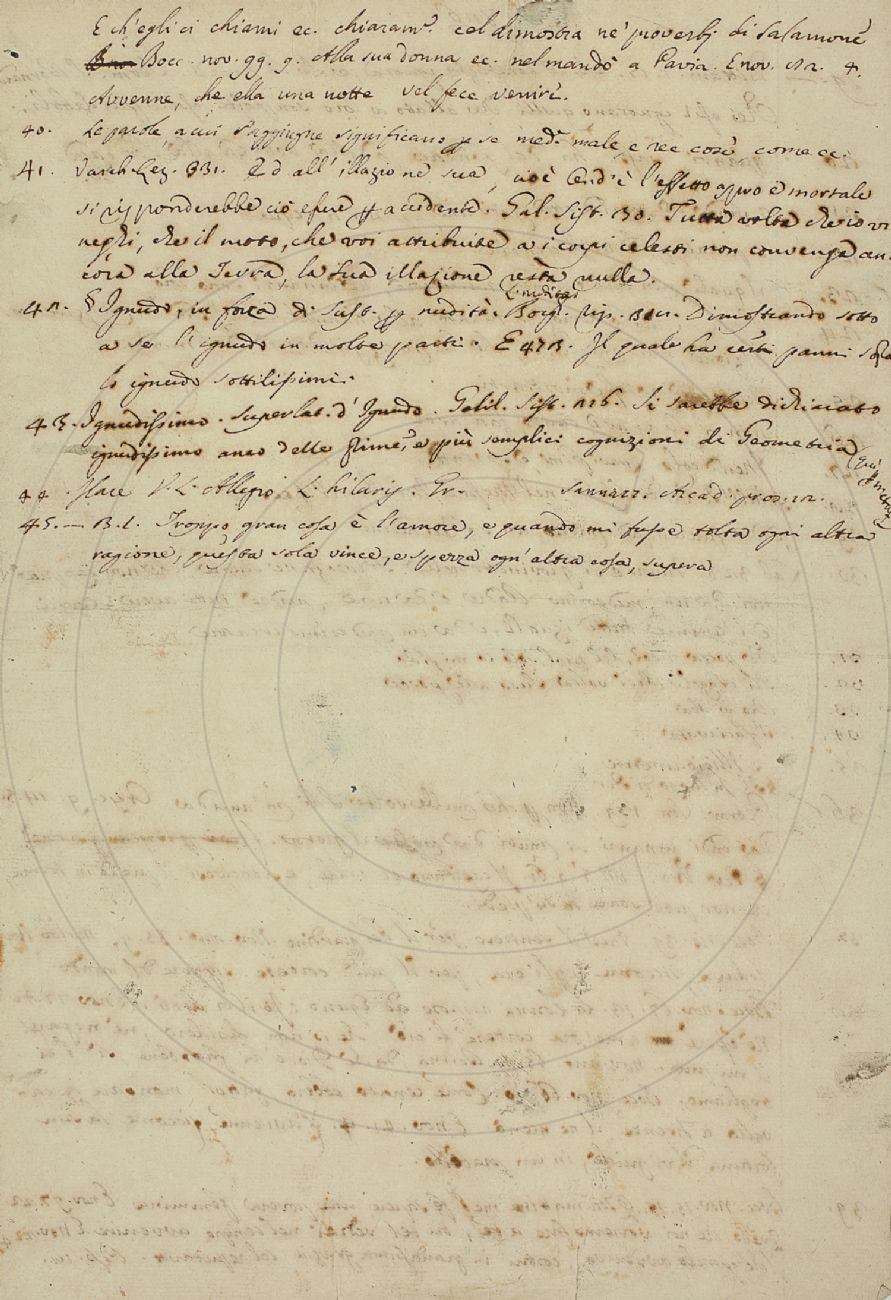 E ch'egli ci chiami ec. chiaram.e cel dimostra ne' proverbj di Salamone
Bocc. nov. 99. 9. Alla sua donna ec. nel mandò a Pavia. E nov. 4.
Avvenne, che ella una notte vel fece venire.
40. Le parole, a cui s'aggiugne significano p se med.e male, e ree cose, come ec.
41. Varch. Lez. 331. E d all' illazione sua, cioè l'effetto aspro e mortale
si risponderebbe ciò essere p accidente. Gal. Sist. 30. Tutta volta che io vi
neghi, che il moto, che voi attribuite a i corpi celesti non convenga an-
cora alla Terra, la sua illazione resta nulla.
42. § Ignudo, in forza di Sust. p nudità. Borgh. Rip. Dimostrando sotto
a se l'ignudo in molte parti. E 473. Il quale ha certi panni sopra
lo ignudo sottilissimi.
43. Ignudissimo. Superlat. d'Ignudo. Galil. Sist. 216. Si sarebbe dichiarato
ignudissimo anco delle prime, e più semplici cognizioni di Geometria
44. Ilare V. L. Allegro L. hilaris. Gr. Sannazz. Arcad. pros. 12.
45. — B. l. Troppo gran cosa è l'amore, e quando mi fusse tolta ogni altra
ragione, questa sola vince, e sperza ogn'altra cosa, supera